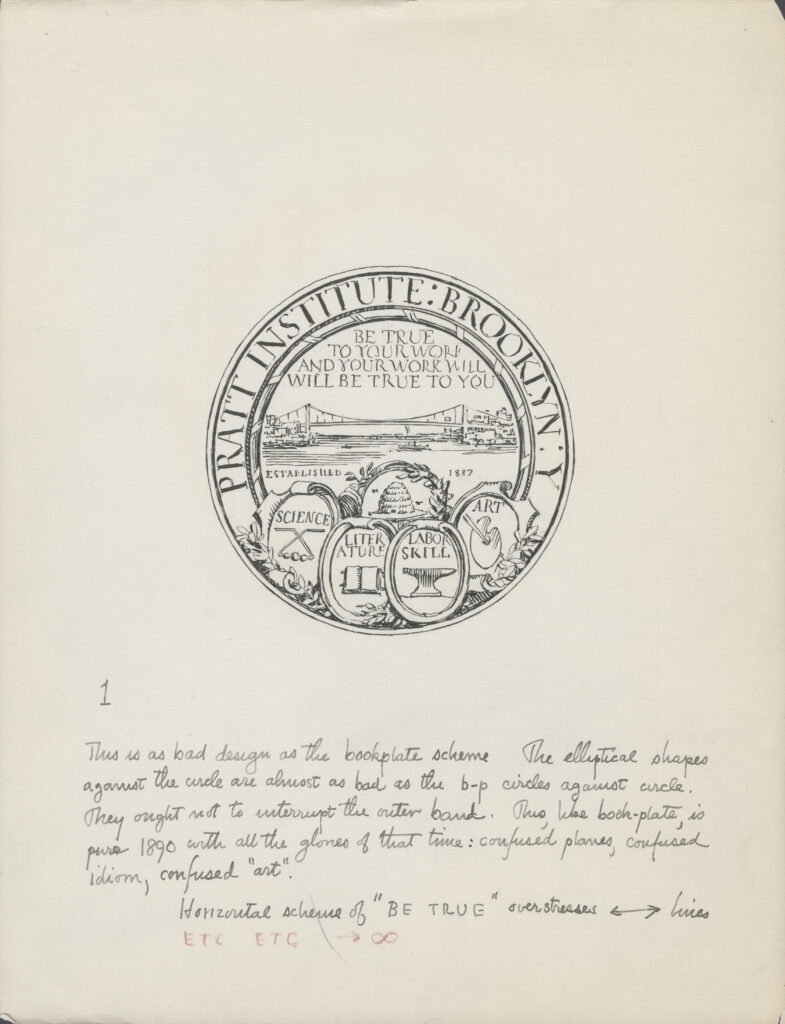 PRATT INSTITUTE: BROOKLYN: Y
BE TRUE
TO YOUR WORK
AND YOUR WORK WILL
WILL BE TRUE TO YOU
ESTABLISHED 1887
SCIENCE
LITER
ATURE
LABOR
SKILL
ART
1
This is as bad design as the bookplate scheme The elliptical shapes
against the circle are almost as bad as the b-p circles against circle.
They ought not to interrupt the outer band. This, like book-plate, is
pure 1890 with all the glories of that time: confused planes, confused
idiom, confused "art".
Horizontal scheme of "BE TRUE" overstresses ⟷ lines
ETC ETC → ∞